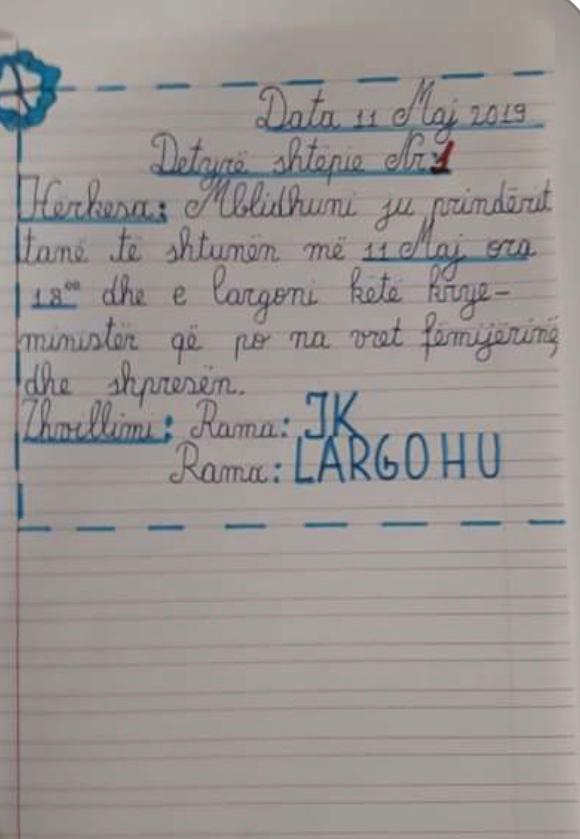 Data 11 Maj 2019
Detyrë shtëpie Nr:1
Kërkesa: Mblidhuni ju prindërit
tanë të shtunën më 11 Maj ora
18⁰⁰ dhe e largoni këtë krye-
ministër që po na vret fëmijërinë
dhe shpresën.
Zhvillimi: Rama: IK
Rama: LARGOHU